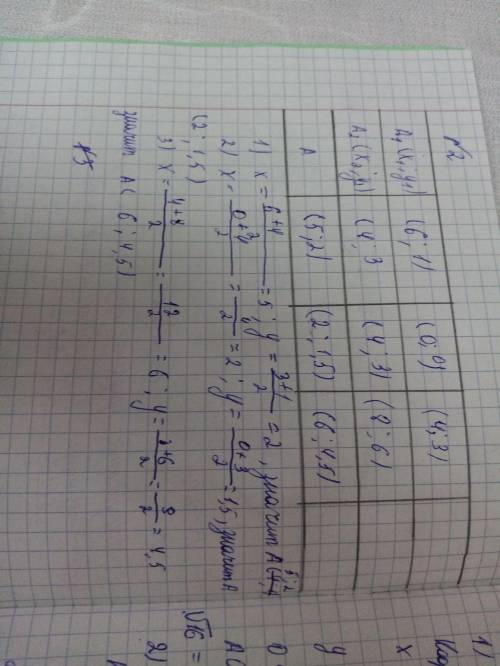 №2
A₁(x₁;y₁) (6;1) (0;0) (4;3)
A₂(x₂;y₂) (4;3 (4;3) (8;6)
A (5;2) (2;1,5) (6;4,5)
1) x = 6+4/2 = 5; y = 3+1/2 = 2, значит A(5;2
2) x = 0+4/2 = 4/2 = 2; y = 0+3/2 = 1,5, значит A
(2;1,5)
3) x = 4+8/2 = 12/2 = 6; y = 3+6/2 = 9/2 = 4,5
значит A( 6;4,5)
№3
1)
x
y
√16 =
2)